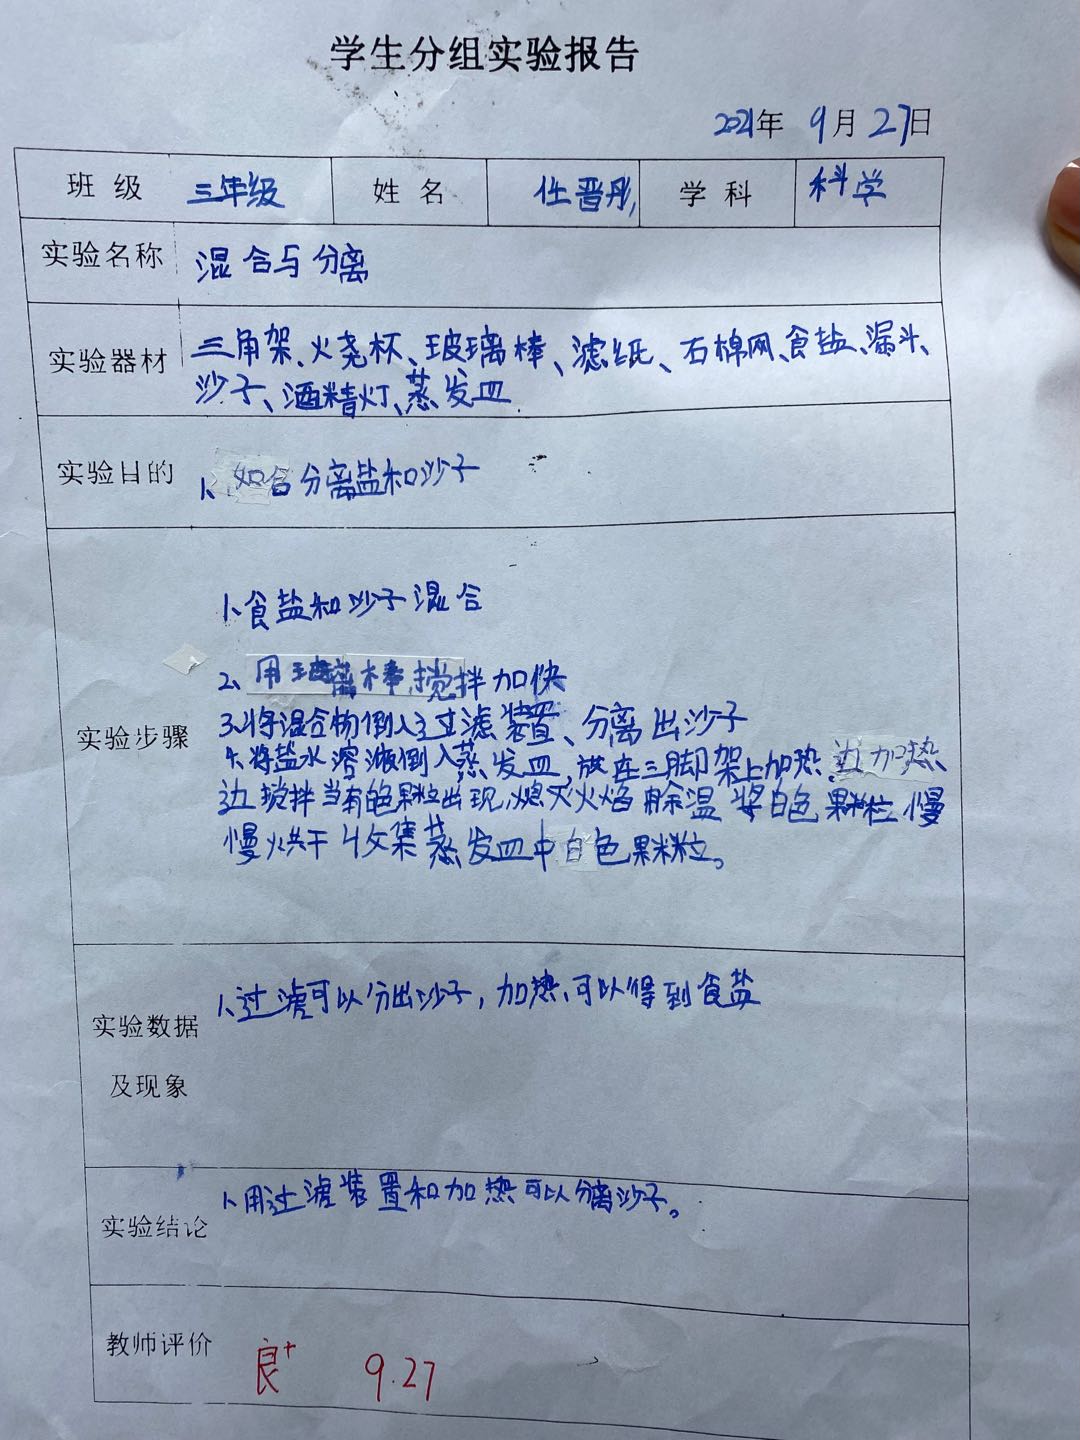 学生分组实验报告
2021年 9月27日
班 级 三年级 姓 名 任晋彤 学 科 科学
实验名称 混合与分离
实验器材 三角架、火尧杯、玻璃棒、滤纸、石棉网、食盐、漏斗、
沙子、酒精灯、蒸发皿
实验目的 1、如合分离盐和沙子
1、食盐和沙子混合
2、用玻璃棒,搅拌加快
实验步骤 3、将混合物倒入过滤装置、分离出沙子
4、将盐水溶液倒入蒸发皿,放在三脚架上加热,边加热
边搅拌当有白色果粒出现,熄灭火焰用余温将白色果粒慢
慢烘干收集蒸发皿中白色果粒。
实验数据 1、过滤可以分出沙子,加热、可以得到食盐
及现象
实验结论 1、用过滤装置和加热可以分离沙子。
教师评价 良+ 9.27